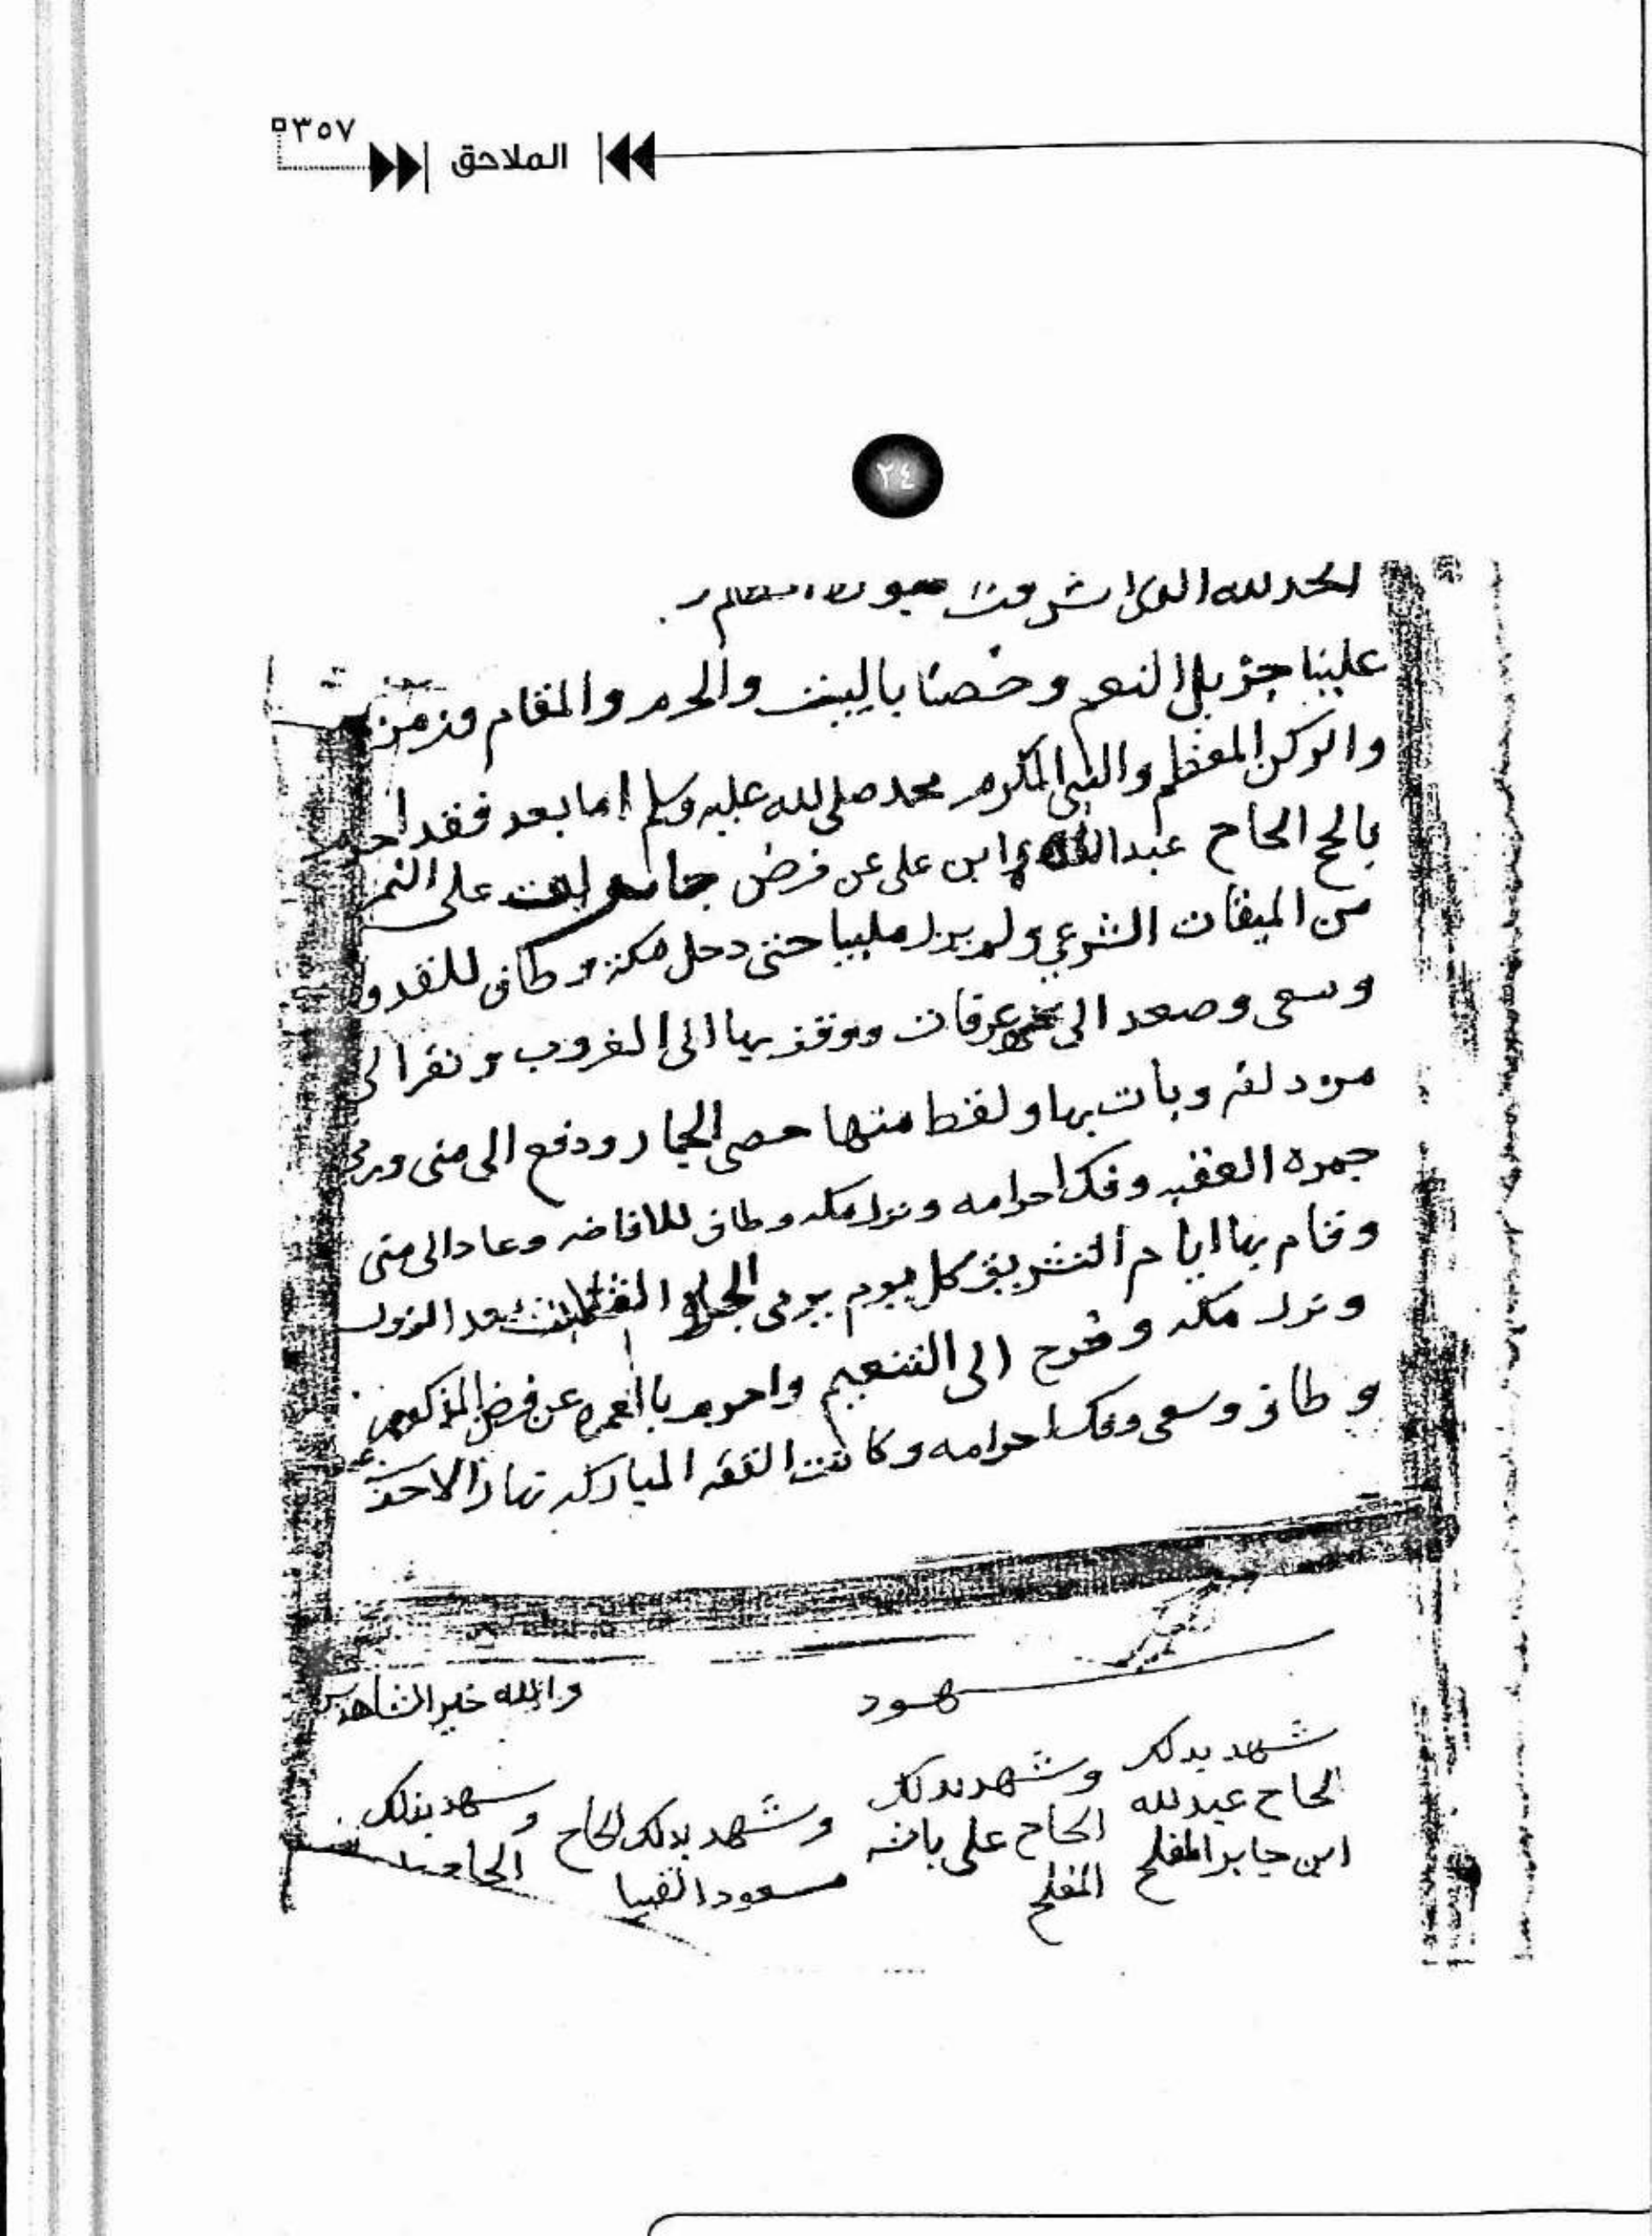 ٣٥٧
الملاحق
٢٤
الحمد لله الذي اشرقت
علينا جزيل النعم وخصنا بالبيت والحرم والمقام وزمزم
والركن المعظم والنبي المكرم محمد صلى لله عليه وسلم اما بعد فقد احرم
بالحج الحاج ابن علي عن فرض على النمر
من الميقات الشرعي ولم يزل ملبيا حتى دخل مكة وطاف للقدوم
وسعى وصعد الى عرفات ووقف بها الى الغروب ونفر الى
مزدلفه وبات بها ولقط منها حصى الجمار ودفع الى منى ورمى
جمرة العقبه وفك احرامه ونزل مكه وطاف للافاضه وعاد الى منى
وقام بها ايام التشريق كل يوم يرمي بعد الزوال
ونزل مكه وخرج الى التنعيم واحرم بالعمره عن فرض المذكور
وطاف وسعى وفك احرامه وكانت الوقفه المباركه نهار الاحد
شهود
والله خير الشاهدين
شهد بذلك وشهد بذلك وشهد بذلك الحاج وشهد بذلك
الحاج عبدلله الحاج علي مسعود
ابن جابر المفلح المفلح